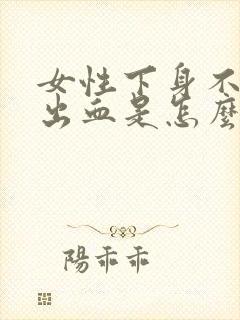 女性下身不
出血是怎麼
陽乖乖